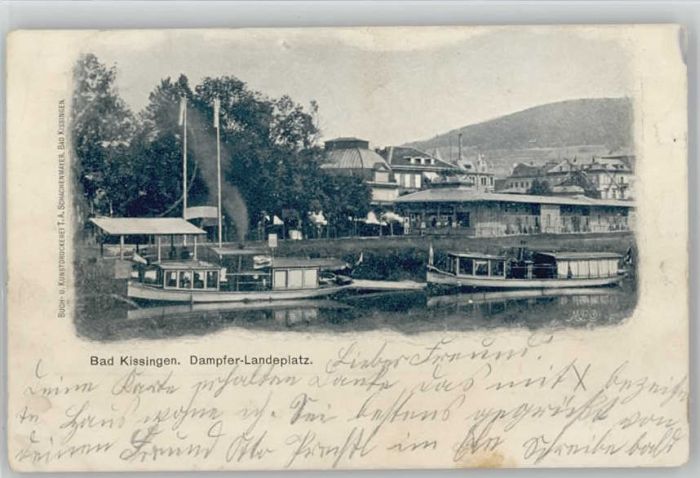 BUCH- U. KUNSTDRUCKEREI T. A. SCHACHENMAYER, BAD KISSINGEN.
Bad Kissingen. Dampfer-Landeplatz.
Lieber Freund!
Deine Karte erhalten Danke, das mit X bezeich
te Haus wohne ich. Sei bestens gegrüßt von
deinem Freund Otto im Schreibe bald